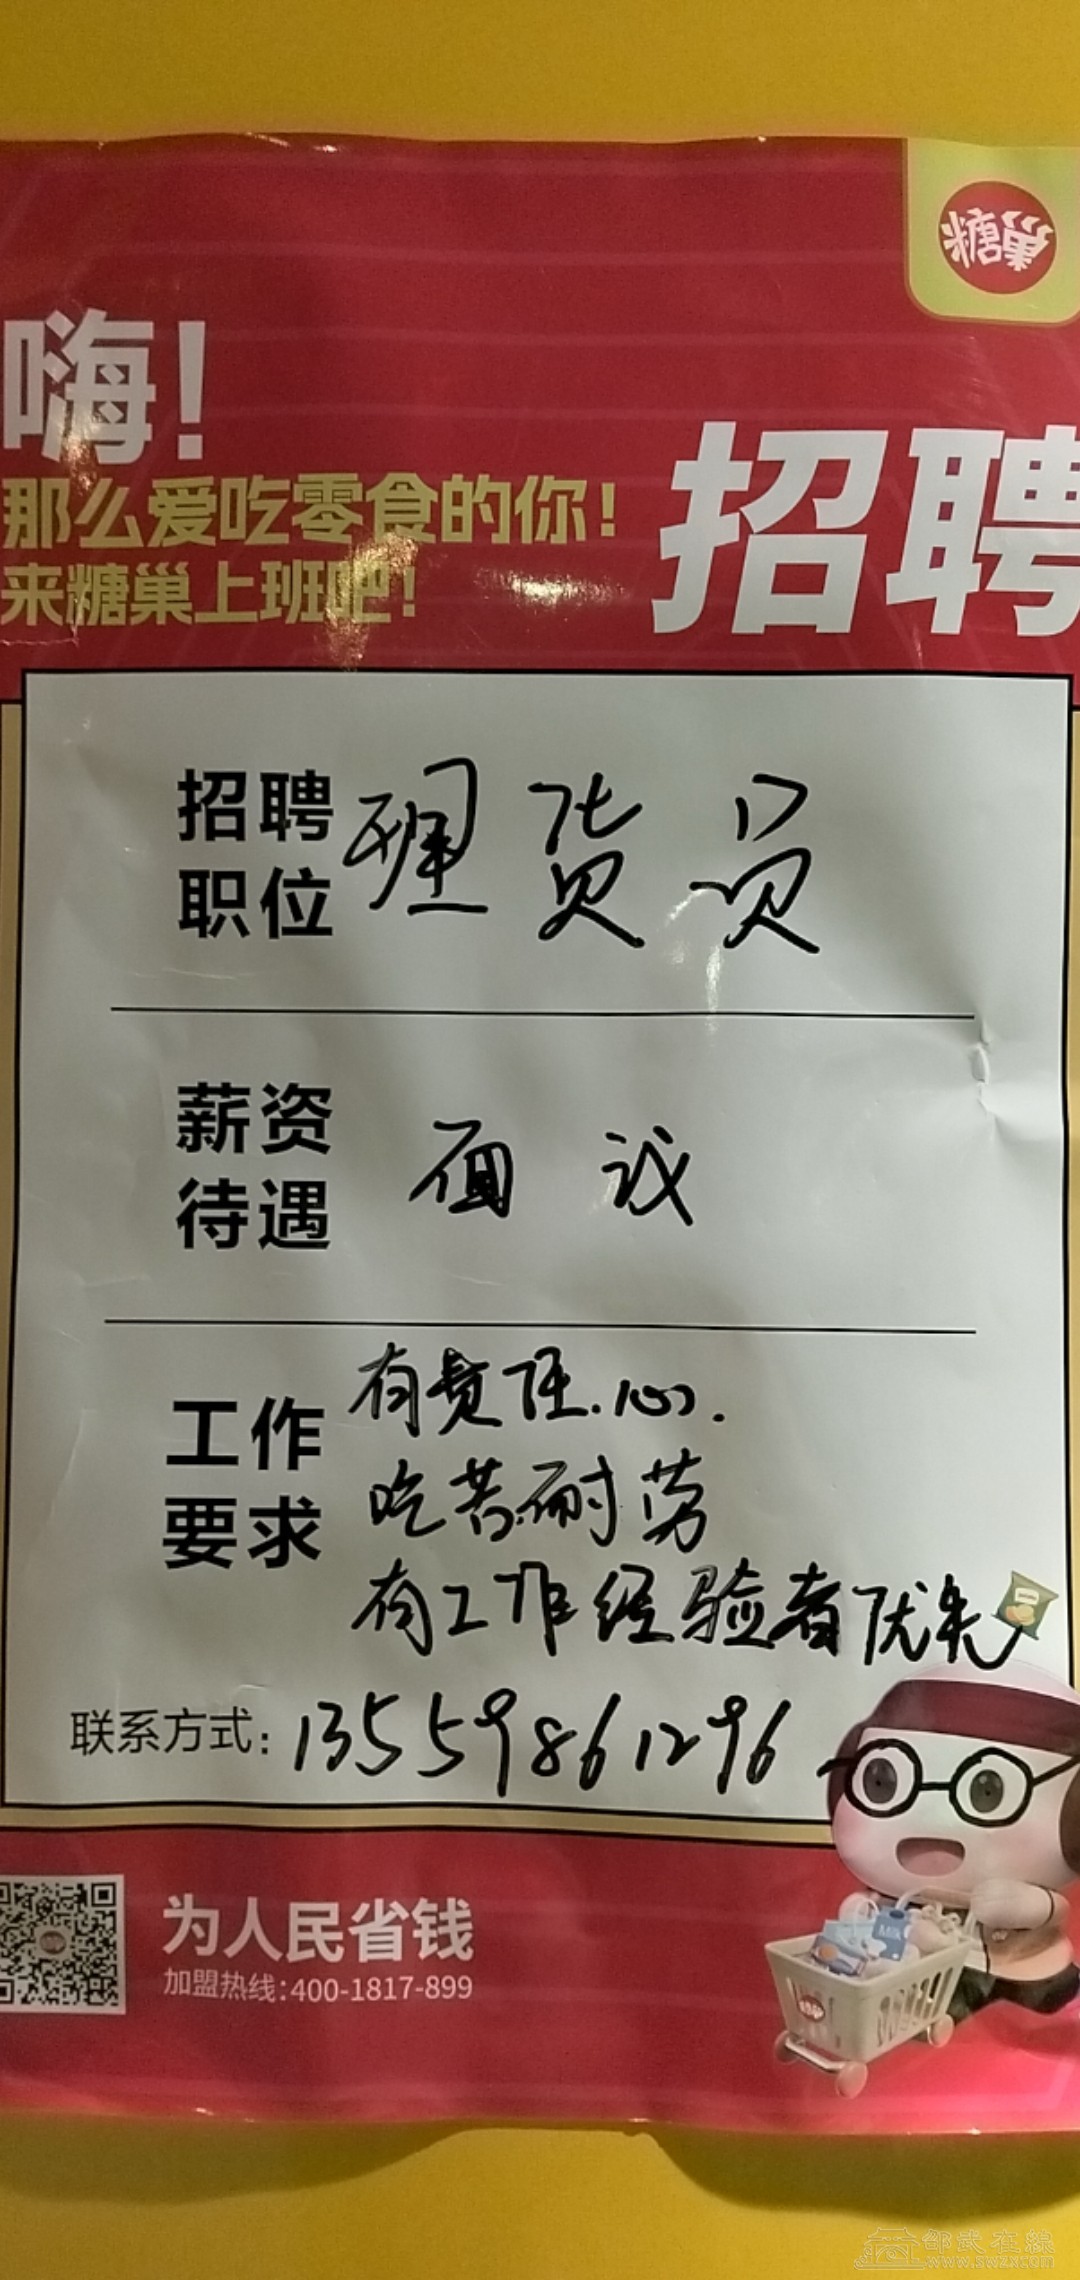 糖巢
嗨!
那么爱吃零食的你!
来糖巢上班吧!
招聘
招聘
职位
理货员
薪资
待遇
面议
工作
要求
有责任心.
吃苦耐劳
有工作经验者优先
联系方式:13559861296
为人民省钱
加盟热线:400-1817-899
邵武在線
www.swzx.com